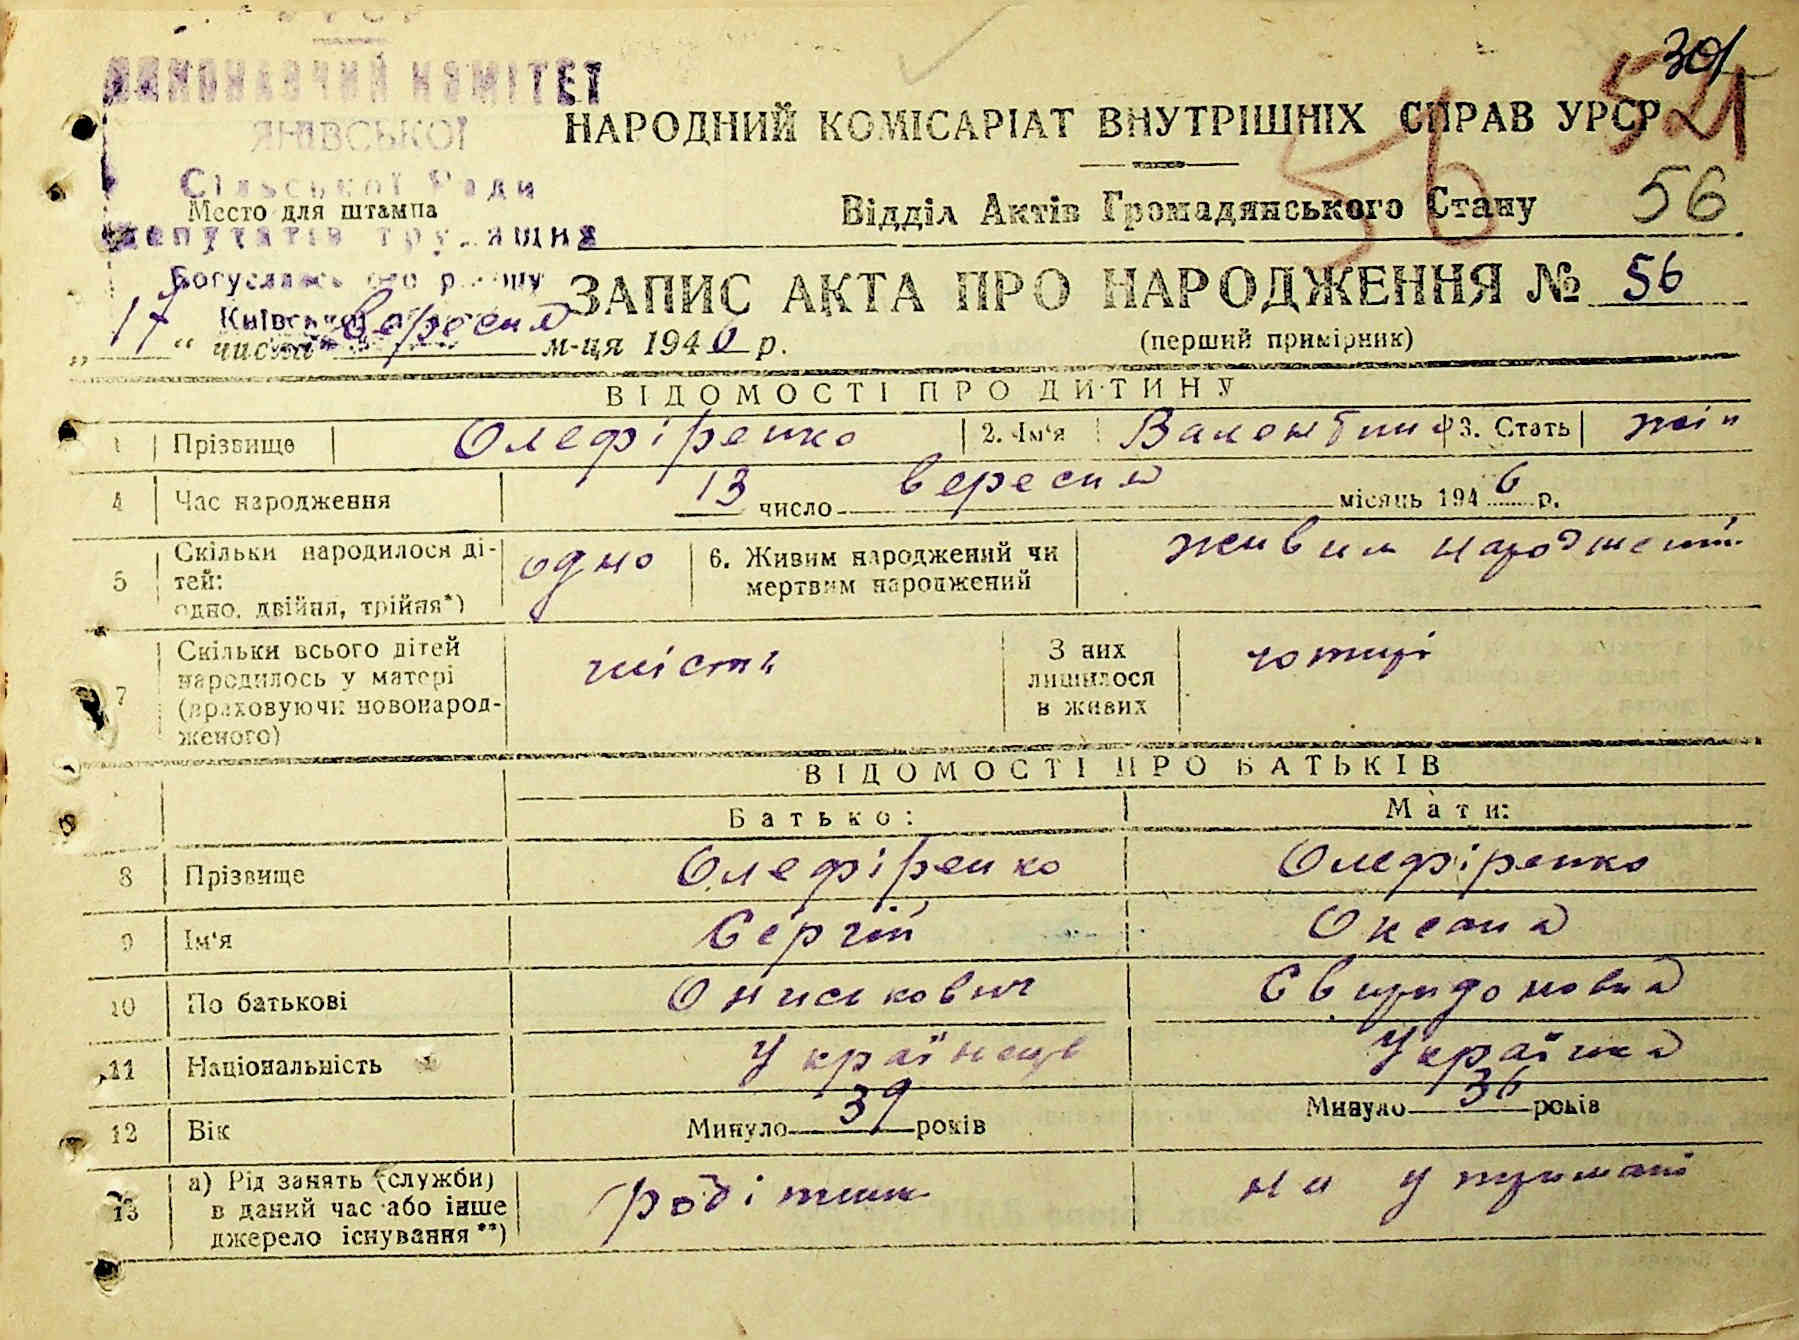 УРСР
ВИКОНАВЧИЙ КОМІТЕТ
ЯНІВСЬКОЇ
Сільської Ради
депутатів трудящих
Богуславського району
Київської
Место для штампа
301
521
НАРОДНИЙ КОМІСАРІАТ ВНУТРІШНІХ СПРАВ УРСР
56
Відділ Актів Громадянського Стану 56
ЗАПИС АКТА ПРО НАРОДЖЕННЯ № 56
(перший примірник)
„17“ числа вересня м-ця 1946 р.
ВІДОМОСТІ ПРО ДИТИНУ
1 Прізвище Олефіренко 2. Ім'я Валентина 3. Стать жін
4 Час народження 13 число вересня місяць 1946 р.
5 Скільки народилося ді-
тей:
одно, двійня, трійня*) одно
6. Живим народжений чи
мертвим народжений живим народжений
7 Скільки всього дітей
народилось у матері
(враховуючи новонарод-
женого) шість
З них
лишилося
в живих чотирі
ВІДОМОСТІ ПРО БАТЬКІВ
Батько: Мати:
8 Прізвище Олефіренко Олефіренко
9 Ім'я Сергій Оксана
10 По батькові Онискович Свиридоновна
11 Національність Українець Українка
12 Вік Минуло 39 років Минуло 36 років
13 а) Рід занять (служби)
в даний час або інше
джерело існування **) робітник на утримані